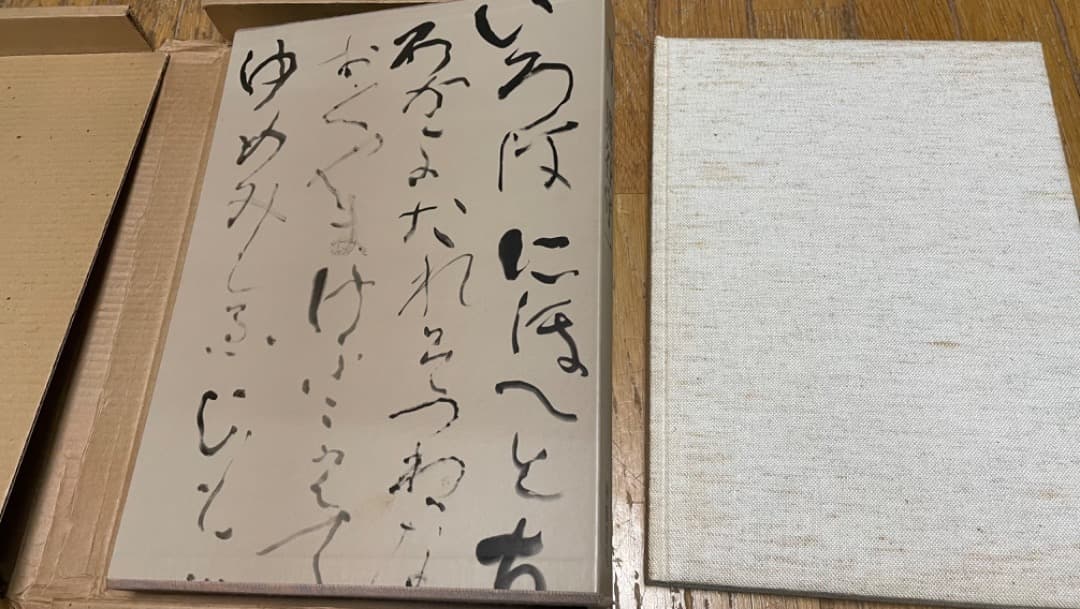 いろはにほへとち
わかよたれそつねな
おくやまけふこえて
ゆめみしゑひも